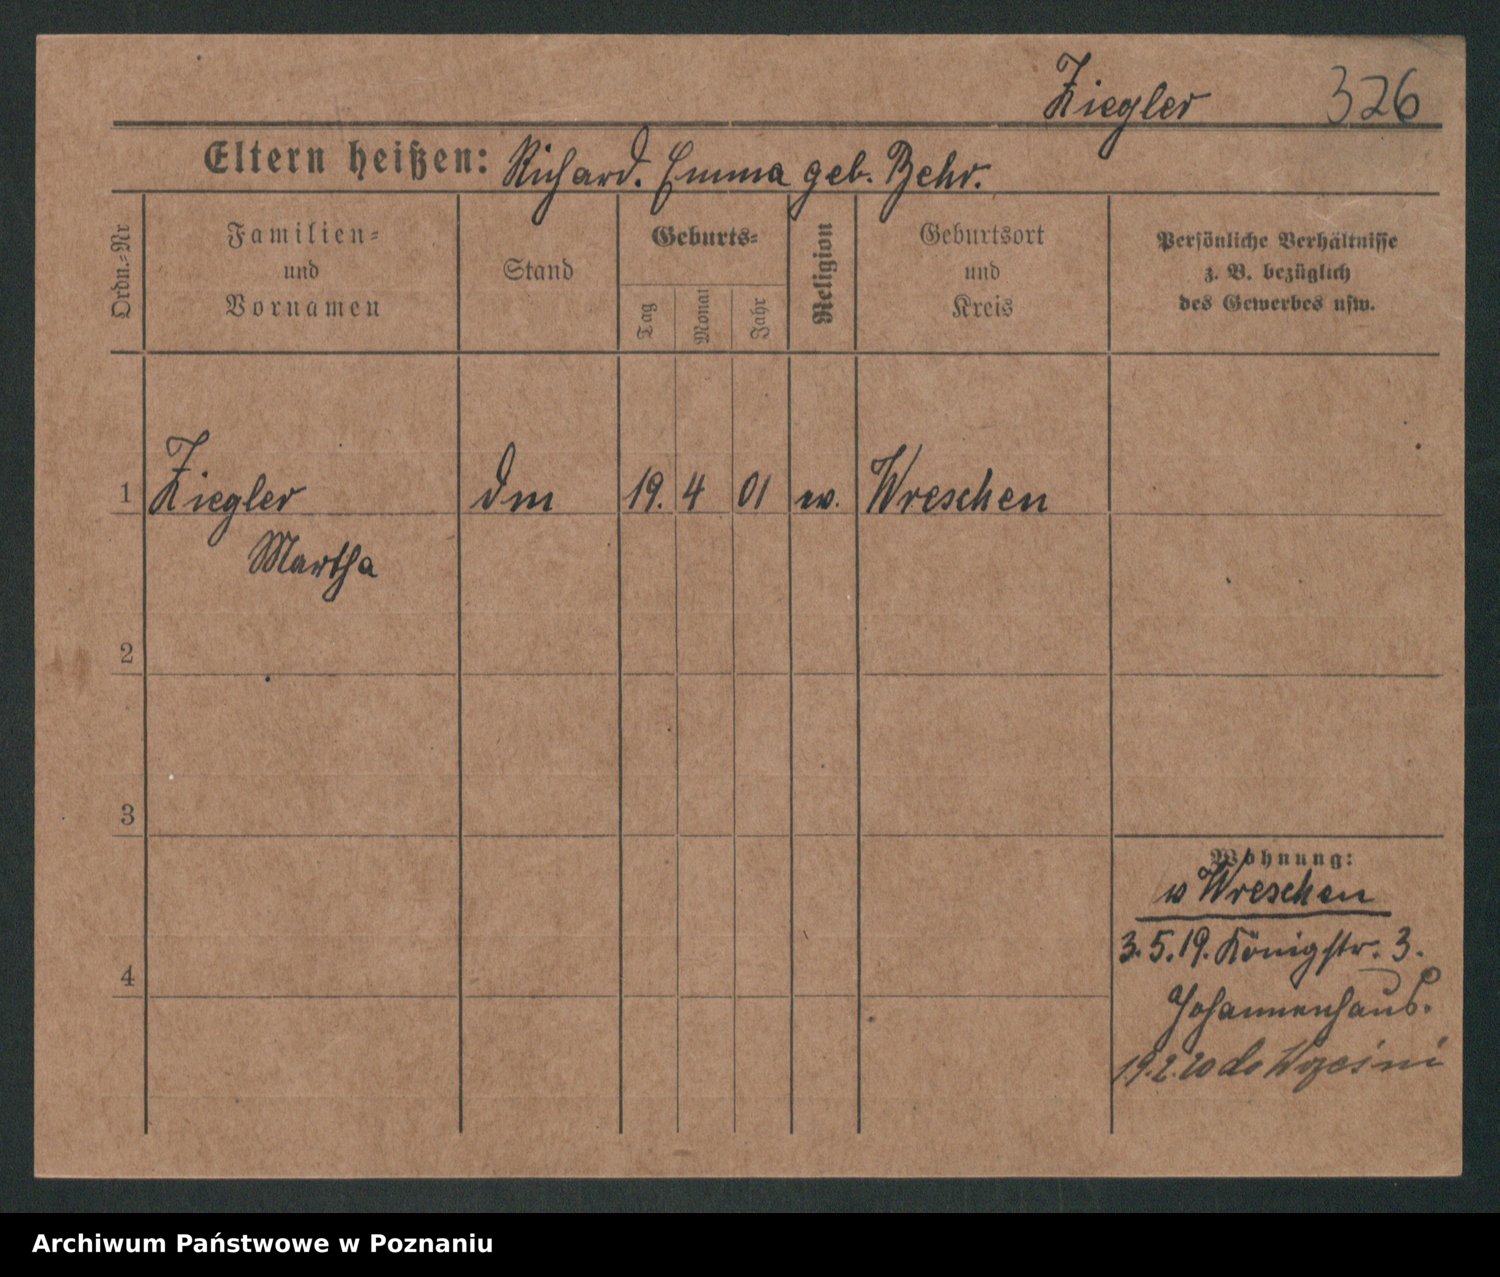 Ziegler 326
Eltern heißen: Richard. Emma geb. Behr.
Ordn.-Nr.
Familien- und Vornamen
Stand
Geburts-
Tag
Monat
Jahr
Religion
Geburtsort und Kreis
Persönliche Verhältnisse
z. B. bezüglich
des Gewerbes usw.
1 Ziegler Dm 19. 4 01 ev. Wreschen
Martha
2
3
4
Wohnung:
Wreschen
3.5.19. Königstr. 3.
Johannenhaus.
19.2.20 do
Archiwum Państwowe w Poznaniu